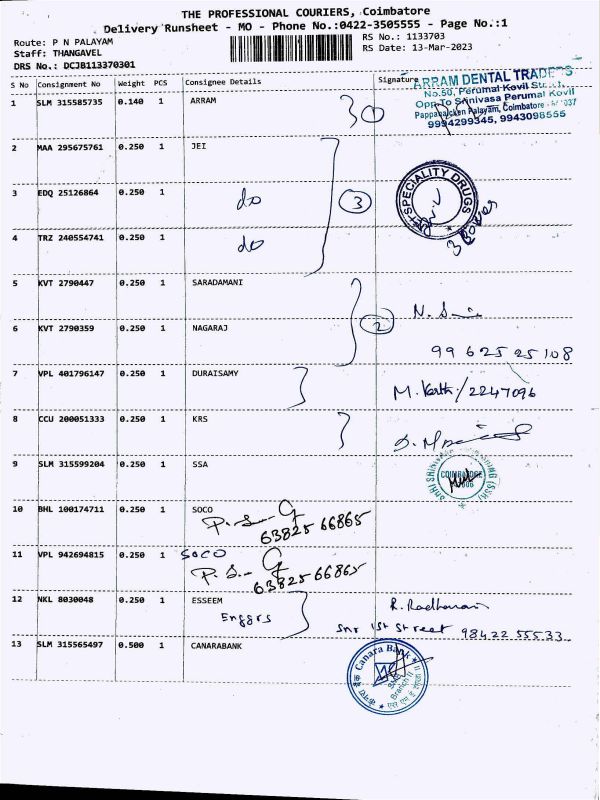 THE PROFESSIONAL COURIERS, Coimbatore
Delivery Runsheet - MO - Phone No.:0422-3505555 - Page No.:1
Route: P N PALAYAM
RS No.: 1133703
Staff: THANGAVEL
RS Date: 13-Mar-2023
DRS No.: DCJB113370301
S No Consignment No Weight PCS Consignee Details Signature
ARRAM DENTAL TRADERS
No.50, Perumal Kovil Street,
Opp.To Srinivasa Perumal Kovil
Pappanaicken Palayam, Coimbatore - 641037
9994299345, 9943098555
1 SLM 315585735 0.140 1 ARRAM
1
2 MAA 295675761 0.250 1 JEI
3 EDQ 25126864 0.250 1 do
3
SPECIALITY DRUGS
3 Boxes
4 TRZ 240554741 0.250 1 do
5 KVT 2790447 0.250 1 SARADAMANI
2
6 KVT 2790359 0.250 1 NAGARAJ
99625 25108
7 VPL 401796147 0.250 1 DURAISAMY
M. Karthi/2247096
8 CCU 200051333 0.250 1 KRS
9 SLM 315599204 0.250 1 SSA
COIMBATORE
10 BHL 100174711 0.250 1 SOCO
63825 66865
11 VPL 942694815 0.250 1 SOCO
63825 66865
12 NKL 8030048 0.250 1 ESSEEM
Enggrs
R. Radhamani
Snr 1st Street 98422 55533
13 SLM 315565497 0.500 1 CANARABANK
Canara Bank